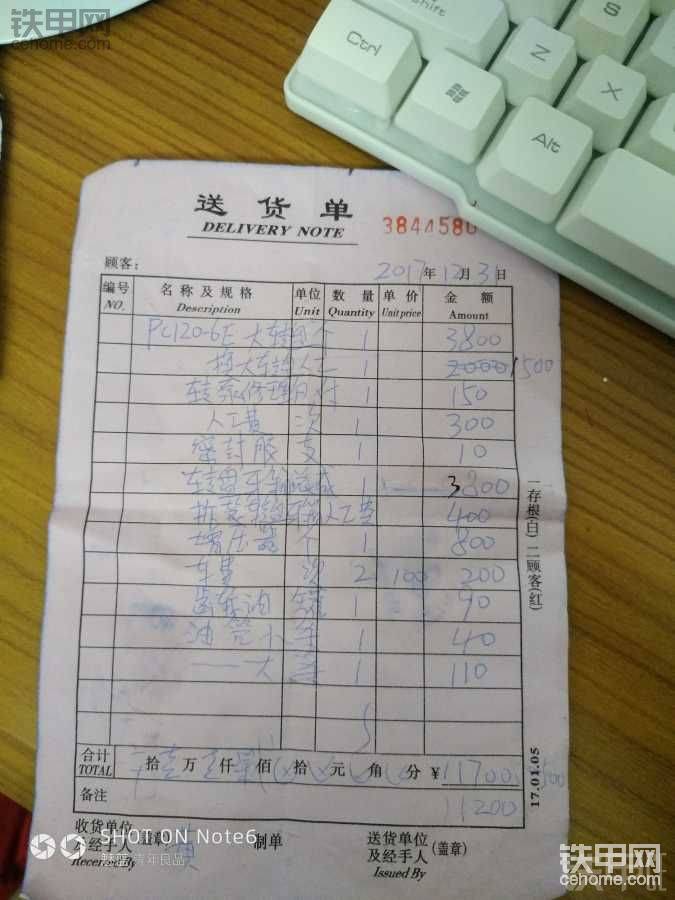 铁甲网
cehome.com
Shift
S
Ctrl
Z
X
Alt
送货单
DELIVERY NOTE
3844580
顾客:
2017年12月31日
编号 名称及规格 单位 数量 单价 金额
NO. Description Unit Quantity Unit price Amount
PC120-6E 大转 个 1 3800
换大 人工 1 1500
转泵修理包 付 1 150
人工费 次 1 300
密封胶 支 1 10
转盘牙箱总成 1 3800
拆装 牙箱人工费 400
增压器 个 1 800
车费 次 2 100 200
齿轮油 罐 1 90
油管小 条 1 40
大 条 1 110
合计 拾壹万壹仟柒佰拾元角分 ¥11700
TOTAL
备注 11200
收货单位
及经手人 (盖章)
Received By
制单
送货单位
及经手人 (盖章)
Issued By
一存根(白) 二顾客(红)
17.01.05
SHOT ON Note6
魅族 青年良品
铁甲网
cehome.com